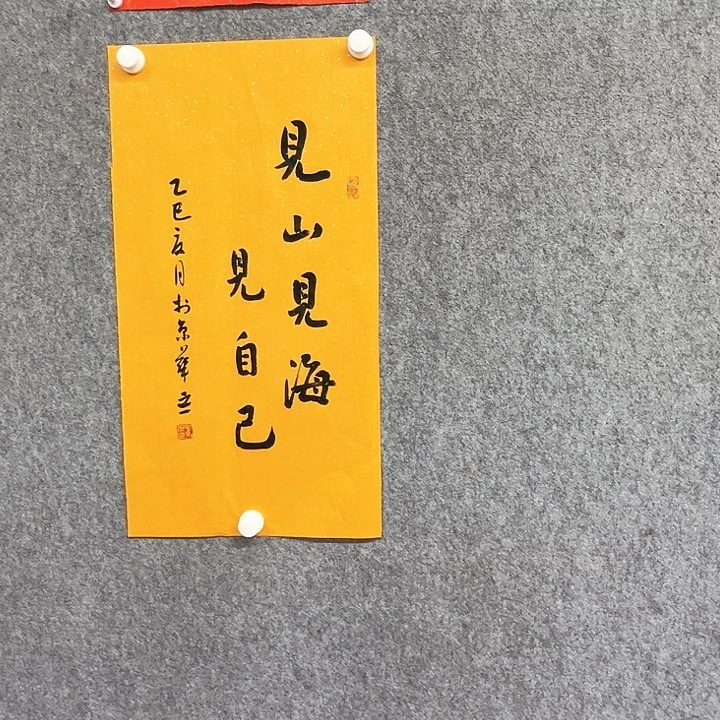 見山見海
見自己
乙巳夏月於京華